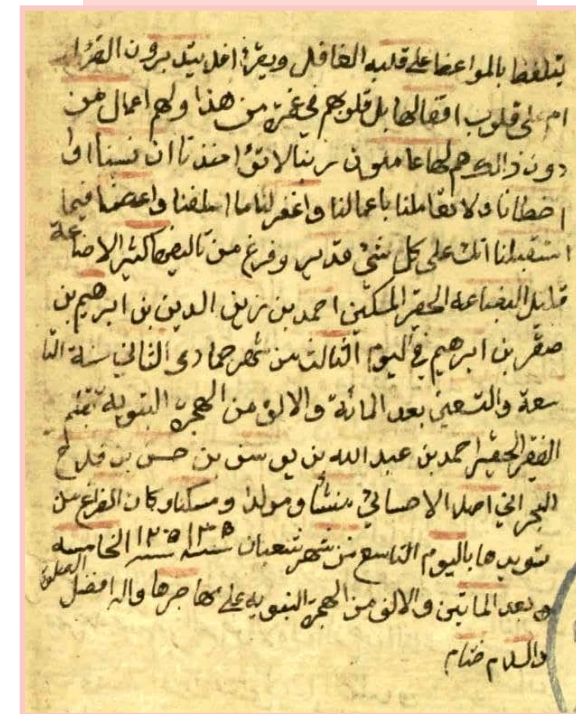 يتلفظ بالمواعظ على قلبه الغافل ويقرأ افلا يتدبرون القرآن
ام على قلوب اقفالها بل قلوبهم في غمرة من هذا ولهم اعمال من
دون ذلك هم لها عاملون ربنا لا تؤاخذنا ان نسينا او
اخطانا ولا تقاملنا باعمالنا واغفر لنا ما اسلفنا واعصمنا فيما
استقبلنا انك على كل شيء قدير وفرغ من تاليفها كثير الاضاعة
قليل البضاعه الحقير المسكين احمد بن زين الدين بن ابرهيم بن
صقر بن ابرهيم في اليوم الثالث من شهر جمادى الثاني سنة التا
سعة والتسعين بعد المائة والالف من الهجرة النبوية بقلم
الفقير الحقير احمد بن عبد الله بن يوسف بن حسن بن فلاح
البحراني اصلا الاحسائي منشأ ومولدا ومسكنا وكان الفراغ من
تسويدها باليوم التاسع من شهر شعبان سنة الخامسه
بعد الماتين والالف من الهجرة النبويه على مهاجرها واله افضل الصلوة
والسلام ختام